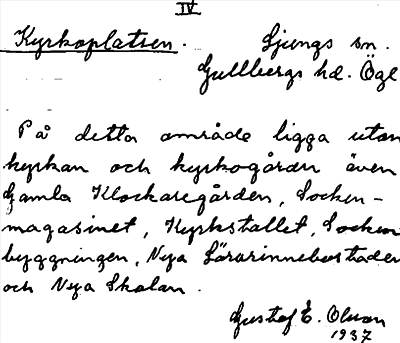 IV
Kyrkoplatsen.
Ljungs sn.
Gullbergs hd. Ögl
På detta område ligga utom
kyrkan och kyrkogården även
Gamla Klockaregården, Socken-
magasinet, Kyrkstallet, Socken
byggningen, Nya Lärarinnebostaden
och Nya Skolan.
Gustaf E. Olsson
1937